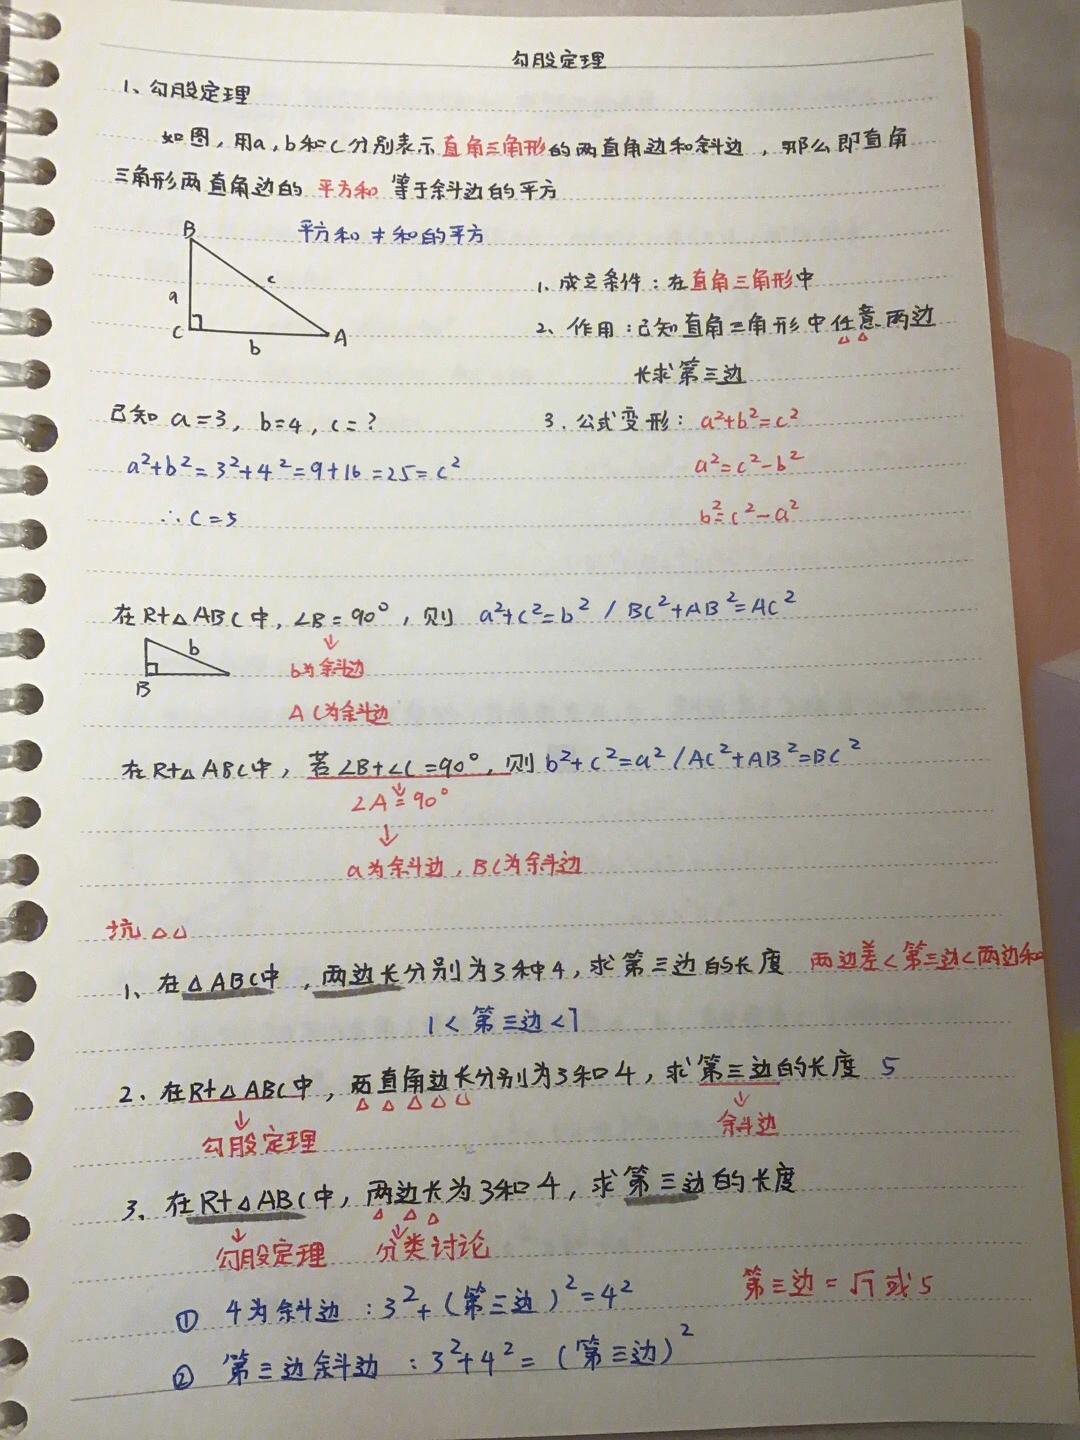 勾股定理
1、勾股定理
如图，用a，b和c分别表示直角三角形的两直角边和斜边，那么即直角
三角形两直角边的 平方和 等于斜边的平方
平方和≠和的平方
B
a
c
C
b
A
1、成立条件：在直角三角形中
2、作用：已知直角三角形中任意两边
长求第三边
3、公式变形：a²+b²=c²
a²=c²-b²
b²=c²-a²
已知 a=3，b=4，c=?
a²+b²=3²+4²=9+16=25=c²
∴c=5
在Rt△ABC中，∠B=90°，则 a²+c²=b² / BC²+AB²=AC²
↓
b
B
b为斜边
AC为斜边
在Rt△ABC中，若∠B+∠C=90°，则 b²+c²=a² / AC²+AB²=BC²
↓
∠A=90°
↓
a为斜边，BC为斜边
坑△△
1、在△ABC中，两边长分别为3和4，求第三边的长度 两边差<第三边<两边和
1<第三边<7
2、在Rt△ABC中，两直角边长分别为3和4，求第三边的长度 5
△△△△△
↓ ↓
勾股定理 斜边
3、在Rt△ABC中，两边长为3和4，求第三边的长度
△△△
↓ ↓
勾股定理 分类讨论
① 4为斜边：3²+（第三边）²=4²
第三边=√7或5
② 第三边斜边：3²+4²=（第三边）²